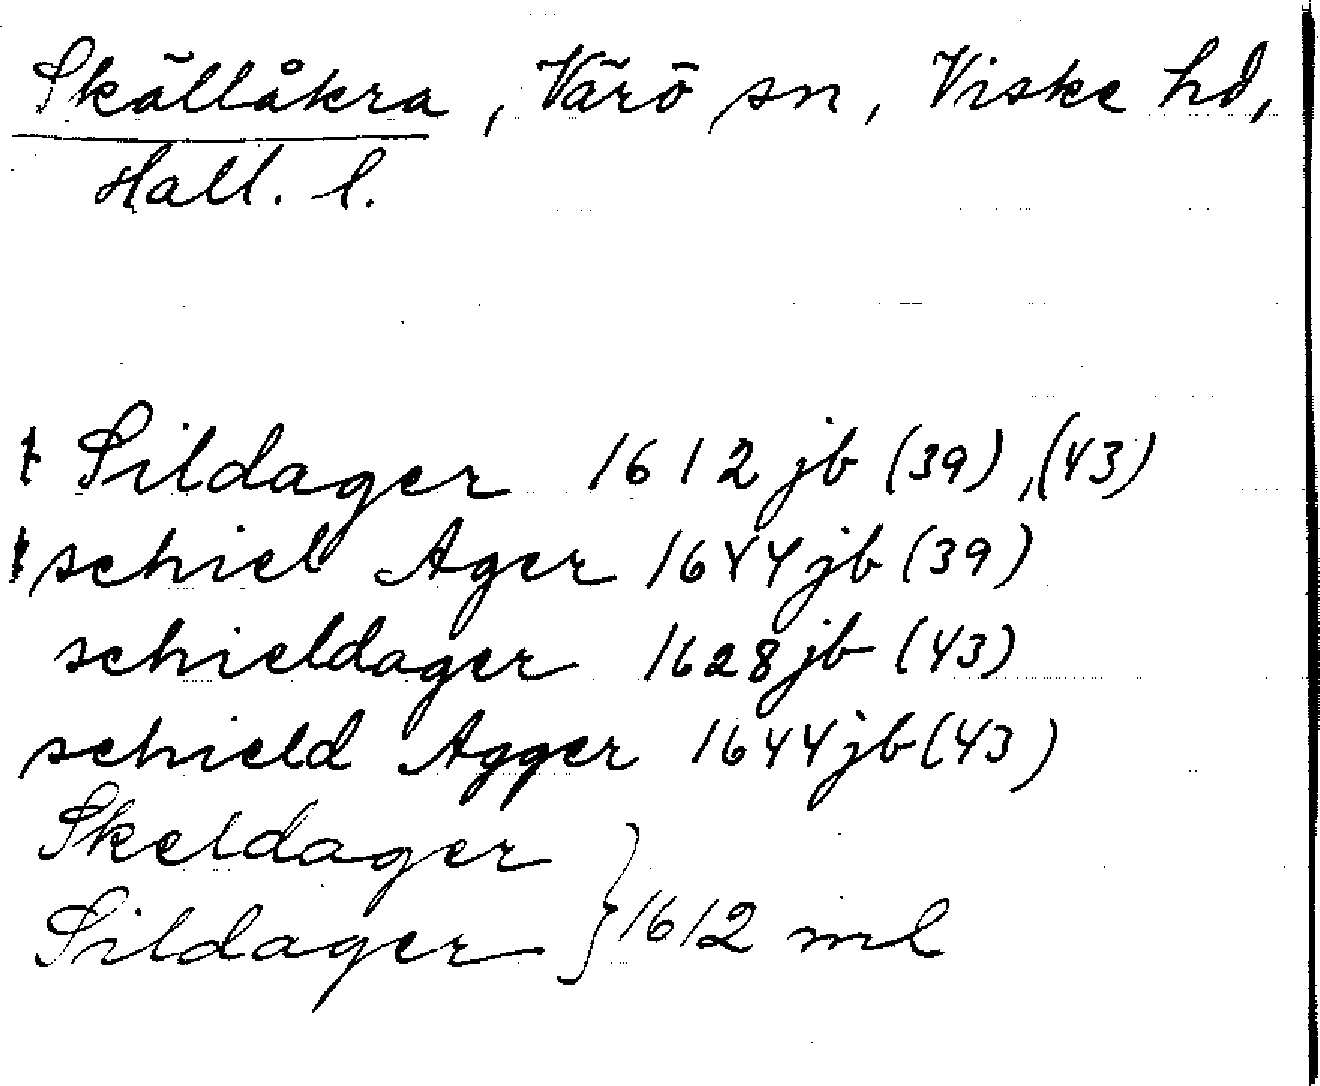 Skällåkra, Värö sn, Viske hd,
Hall. l.
Sildager 1612 jb (39), (43)
schiel Ager 1644 jb (39)
schieldager 1628 jb (43)
schield Agger 1644 jb (43)
Skeldager
Sildager } 1612 ml